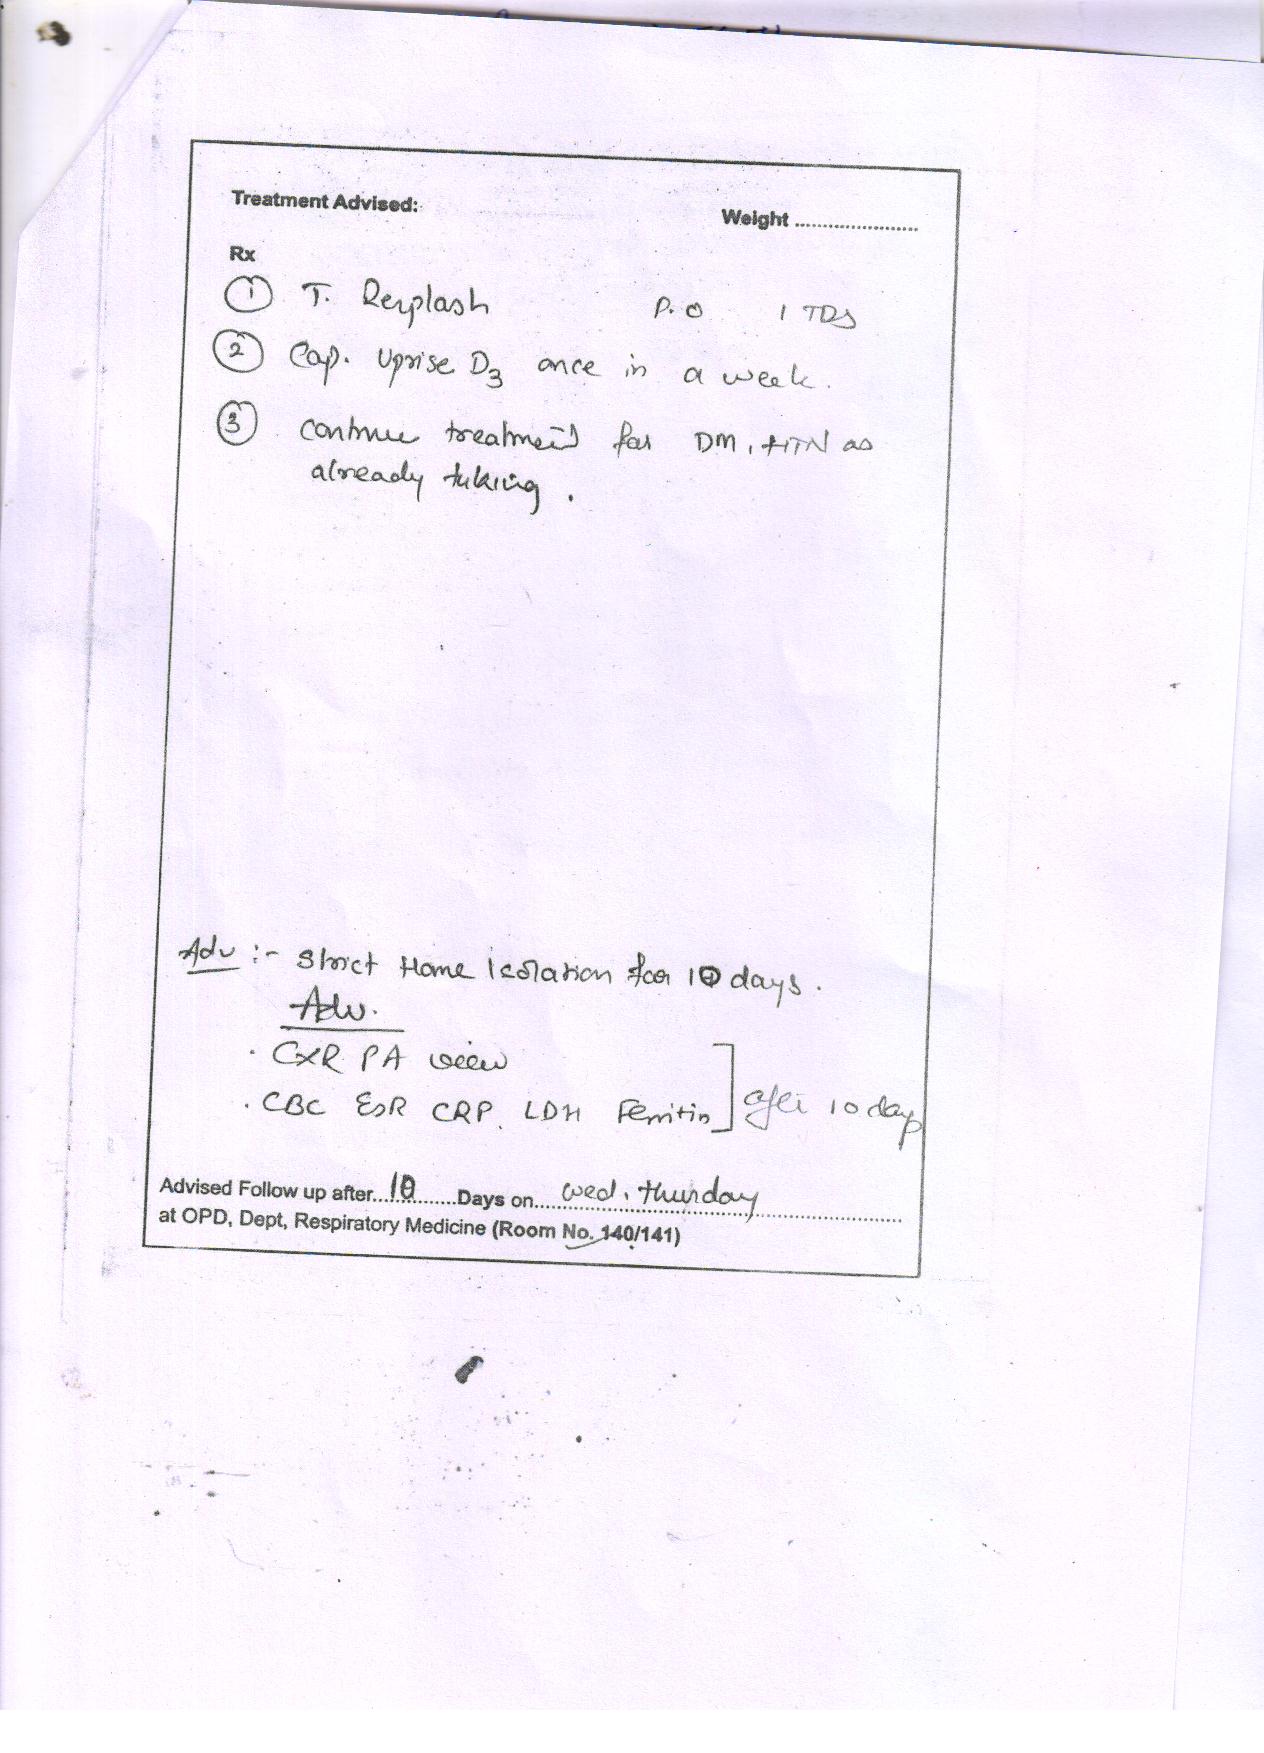 Treatment Advised:
Weight ........................
Rx
① T. Resplash P.O 1 TDS
② Cap. Uprise D3 once in a week.
③ Continue treatment for DM, HTN as
already taking.
Adv :- Strict Home Isolation for 10 days.
Adv.
. CXR PA view
. CBC ESR CRP. LDH Ferritin ] after 10 days
Advised Follow up after...10........Days on.... wed, thursday
at OPD, Dept, Respiratory Medicine (Room No. 140/141)